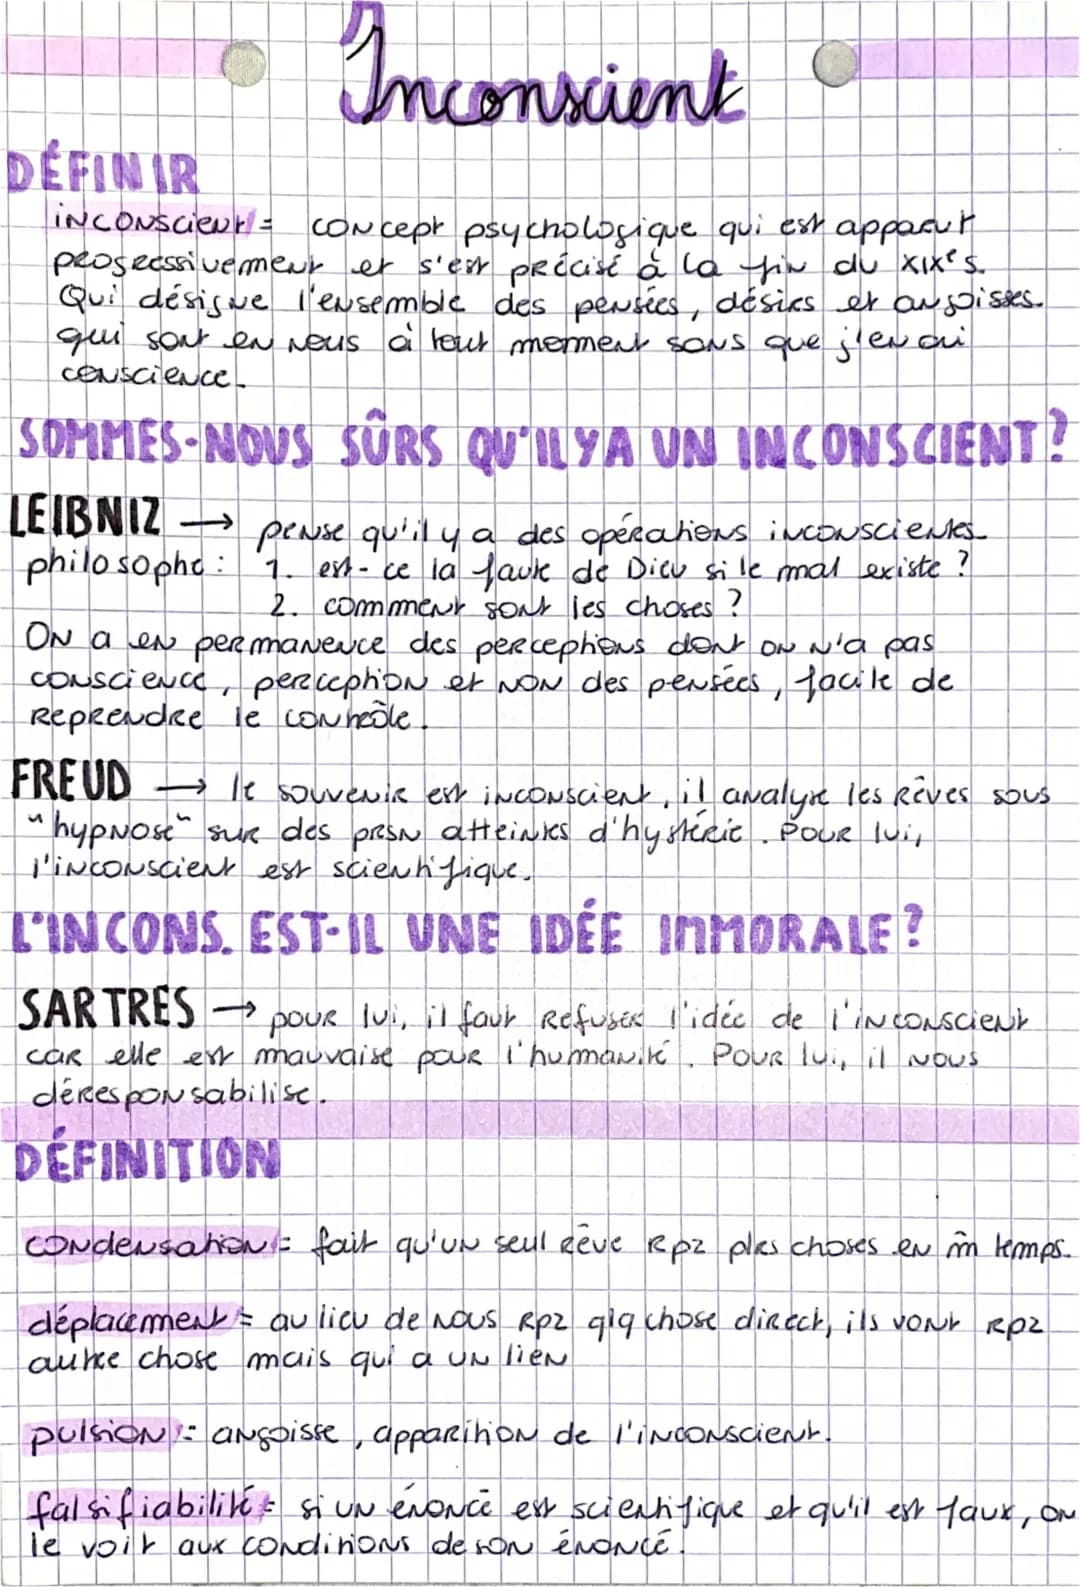 Inconscient
DÉFINIR
inconscient = concept psychologique qui est apparut
progressivement et s'est précisé à la fin du XIXe s.
Qui désigne l'ensemble des pensées, désirs et angoisses.
qui sont en nous à tout moment sans que j'en ai
conscience.
SOMMES-NOUS SÛRS QU'IL Y A UN INCONSCIENT ?
LEIBNIZ → pense qu'il y a des opérations inconscientes.
philosophe : 1. est-ce la faute de Dieu si le mal existe ?
2. comment sont les choses ?
On a en permanence des perceptions dont on n'a pas
conscience, perception et non des pensées, facile de
reprendre le contrôle.
FREUD → le souvenir est inconscient, il analyse les rêves sous
"hypnose" sur des prsn atteintes d'hystérie. Pour lui,
l'inconscient est scientifique.
L'INCONS. EST-IL UNE IDÉE IMMORALE ?
SARTRES → pour lui, il faut refuser l'idée de l'inconscient
car elle est mauvaise pour l'humanité. Pour lui, il nous
déresponsabilise.
DÉFINITION
condensation = fait qu'un seul rêve rpz plrs choses en m̂ temps.
déplacement = au lieu de nous rpz qlq chose direct, ils vont rpz
autre chose mais qui a un lien
pulsion = angoisse, apparition de l'inconscient.
falsifiabilité = si un énoncé est scientifique et qu'il est faux, on
le voit aux conditions de son énoncé.